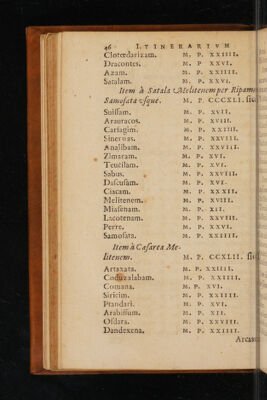 46 ITINERARIVM
Clotœdarizam. M. P. XXIIII.
Dracontes. M. P. XXVI.
Azam. M. P. XXIIII.
Satalam. M. P. XXVI.
Item à Satala Melitenem per Ripam
Samosata vsque. M. P. CCCXLI. sic
Suissam. M. P. XVII.
Arauracos. M. P. XVIII.
Carsagim. M. P. XXIIII.
Sineruas. M. P. XXVIII.
Analibam. M. P. XXVIII.
Zimaram. M. P. XVI.
Teucilam. M. P. XVI.
Sabus. M. P. XXVIII.
Dascusam. M. P. XVI.
Ciacam. M. P. XXXII.
Melitenem. M. P. XVIII.
Miasenam. M. P. XII.
Lacotenam. M. P. XXVIII.
Perre. M. P. XXVI.
Samosata. M. P. XXIIII.
Item à Cæsarea Me-
litenem. M. P. CCXLII. sic
Artaxata. M. P. XXIIII.
Coduzalabam. M. P. XXIIII.
Comana. M. P. XVI.
Siricim. M. P. XXIIII.
Ptandari. M. P. XVI.
Arabissum. M. P. XII.
Osdara. M. P. XXVIII.
Dandexena. M. P. XXIIII.